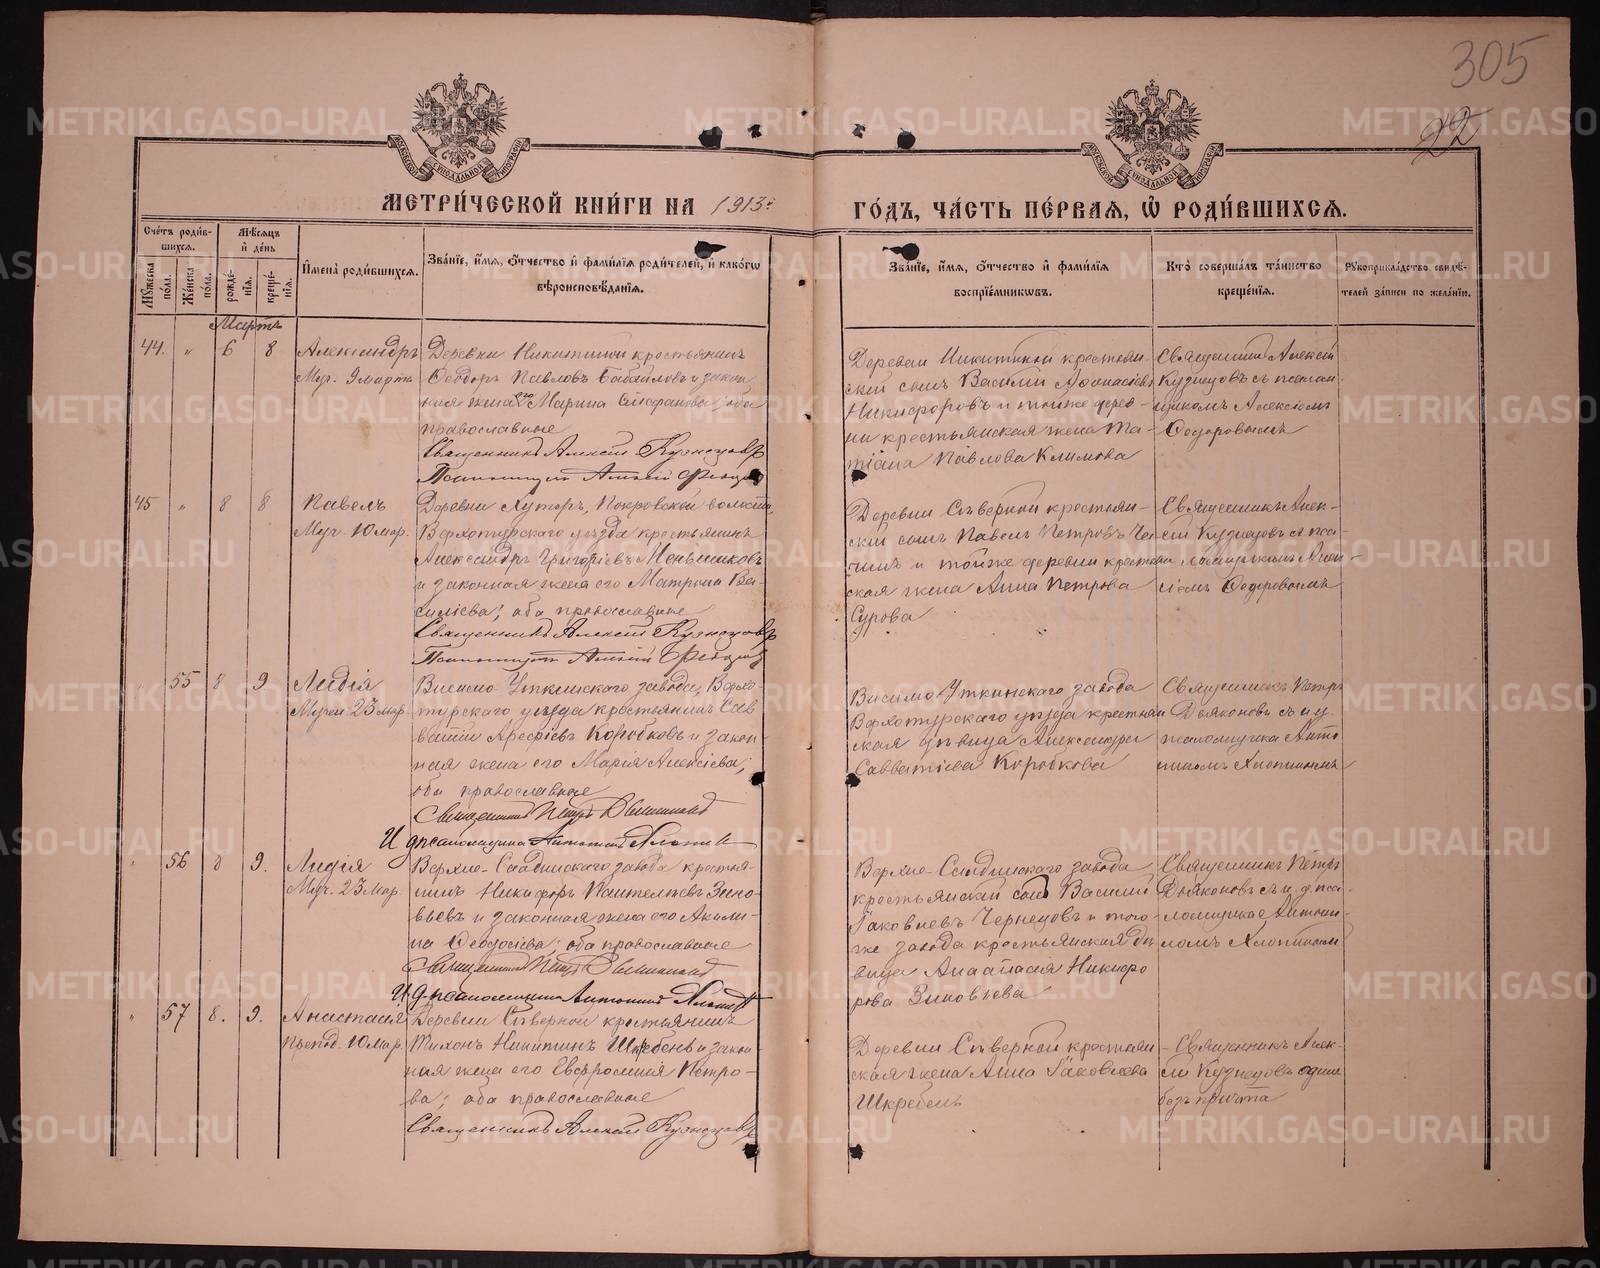 305
22
МЕТРИ́ЧЕСКОЙ КНИ́ГИ НА 1913
ГО́ДЪ, ЧА́СТЬ ПЕ́РВАЯ, Ѡ҆ РОДИ́ВШИХСЯ.
Сче́тъ роди́вшихся.
Мѣ́сяцъ и҆ де́нь
Мꙋ́жеска по́ла.
Же́нска по́ла.
рожде́нїя.
креще́нїя.
И҆мена̀ роди́вшихся.
Зва́нїе, и҆́мя, ѻ҆́тчество и҆ фами́лїя роди́телей, и҆ како́гѡ
вѣроисповѣ́данїя.
Зва́нїе, и҆́мя, ѻ҆́тчество и҆ фами́лїя
воспрїе́мникѡвъ.
Кто̀ соверша́лъ та́инство
креще́нїя.
Рꙋкоприкла́дство свидѣ́телей за́писи по жела́нїю.
Мартъ
44. „ 6 8
Александръ
Муч. 9 марта
Деревни Никитиной крестьянинъ
Ѳеодоръ Павловъ и закон
ная жена его Марина Стефанова; оба
православные
Священникъ Алексій Кузнецовъ
Деревни Никитиной крестьян
скій сынъ Василій Аѳанасіевъ
Никифоровъ и тойже дерев-
ни крестьянская жена Та-
тіана Павлова Климова
Священникъ Алексій
Кузнецовъ съ псалом-
щикомъ Алексіемъ
Ѳедоровымъ
45 „ 8 8
Павелъ
Муч. 10 мар.
Деревни Хуторъ, Покровской волости,
Верхотурскаго уѣзда крестьянинъ
Александръ Григоріевъ Меньшиковъ
и законная жена его Матрона Ва-
силіева; оба православные
Священникъ Алексій Кузнецовъ
Деревни Сѣверной крестьян-
скій сынъ Павелъ Петровъ
и тойже деревни крестьян
ская жена Анна Петрова
Сурова
Священникъ Алек-
сій Кузнецовъ съ пса-
ломщикомъ Алек-
сіемъ Ѳедоровымъ
„ 55 8 9
Лидія
Мучен. 23 мар.
Висимо-Уткинскаго завода, Верхо-
турскаго уѣзда крестьянинъ Сав
ватій Ареѳіевъ Коробковъ и закон-
ная жена его Марія Алексіева;
оба православные
Священникъ Петръ Дьяконовъ
И. д. псаломщика Антонинъ Хлопинъ
Висимо-Уткинскаго завода
Верхотурскаго уѣзда крестьян
ская дѣвица Александра
Савватіева Коробкова
Священникъ Петръ
Дьяконовъ съ и. д.
псаломщика Анто
ниномъ Хлопинымъ
„ 56 8 9.
Лидія
Муч. 23 мар.
Верхне-Салдинскаго завода крестья-
нинъ Никифоръ Пантелѣевъ Зино-
вьевъ и законная жена его Акили-
на Ѳеодосіева; оба православные
Священникъ Петръ Дьяконовъ
И. д. псаломщика Антонинъ Хлопинъ
Верхне-Салдинскаго завода
крестьянскій сынъ Василій
Іаковлевъ Чернецовъ и того-
же завода крестьянская дѣ
вица Анастасія Никифо
рова Зиновьева
Священникъ Петръ
Дьяконовъ съ и. д. пса-
ломщика Антони-
номъ Хлопинымъ
„ 57 8. 9.
Анастасия
Препод. 10 мар.
Деревни Сѣверной крестьянинъ
Тихонъ Никитинъ Шкребень и закон-
ная жена его Евфросинія Петро-
ва; оба православные
Священникъ Алексій Кузнецовъ
Деревни Сѣверной крестьян-
ская жена Анна Іаковлева
Шкребень
Священникъ Алек-
сій Кузнецовъ одинъ
безъ причта